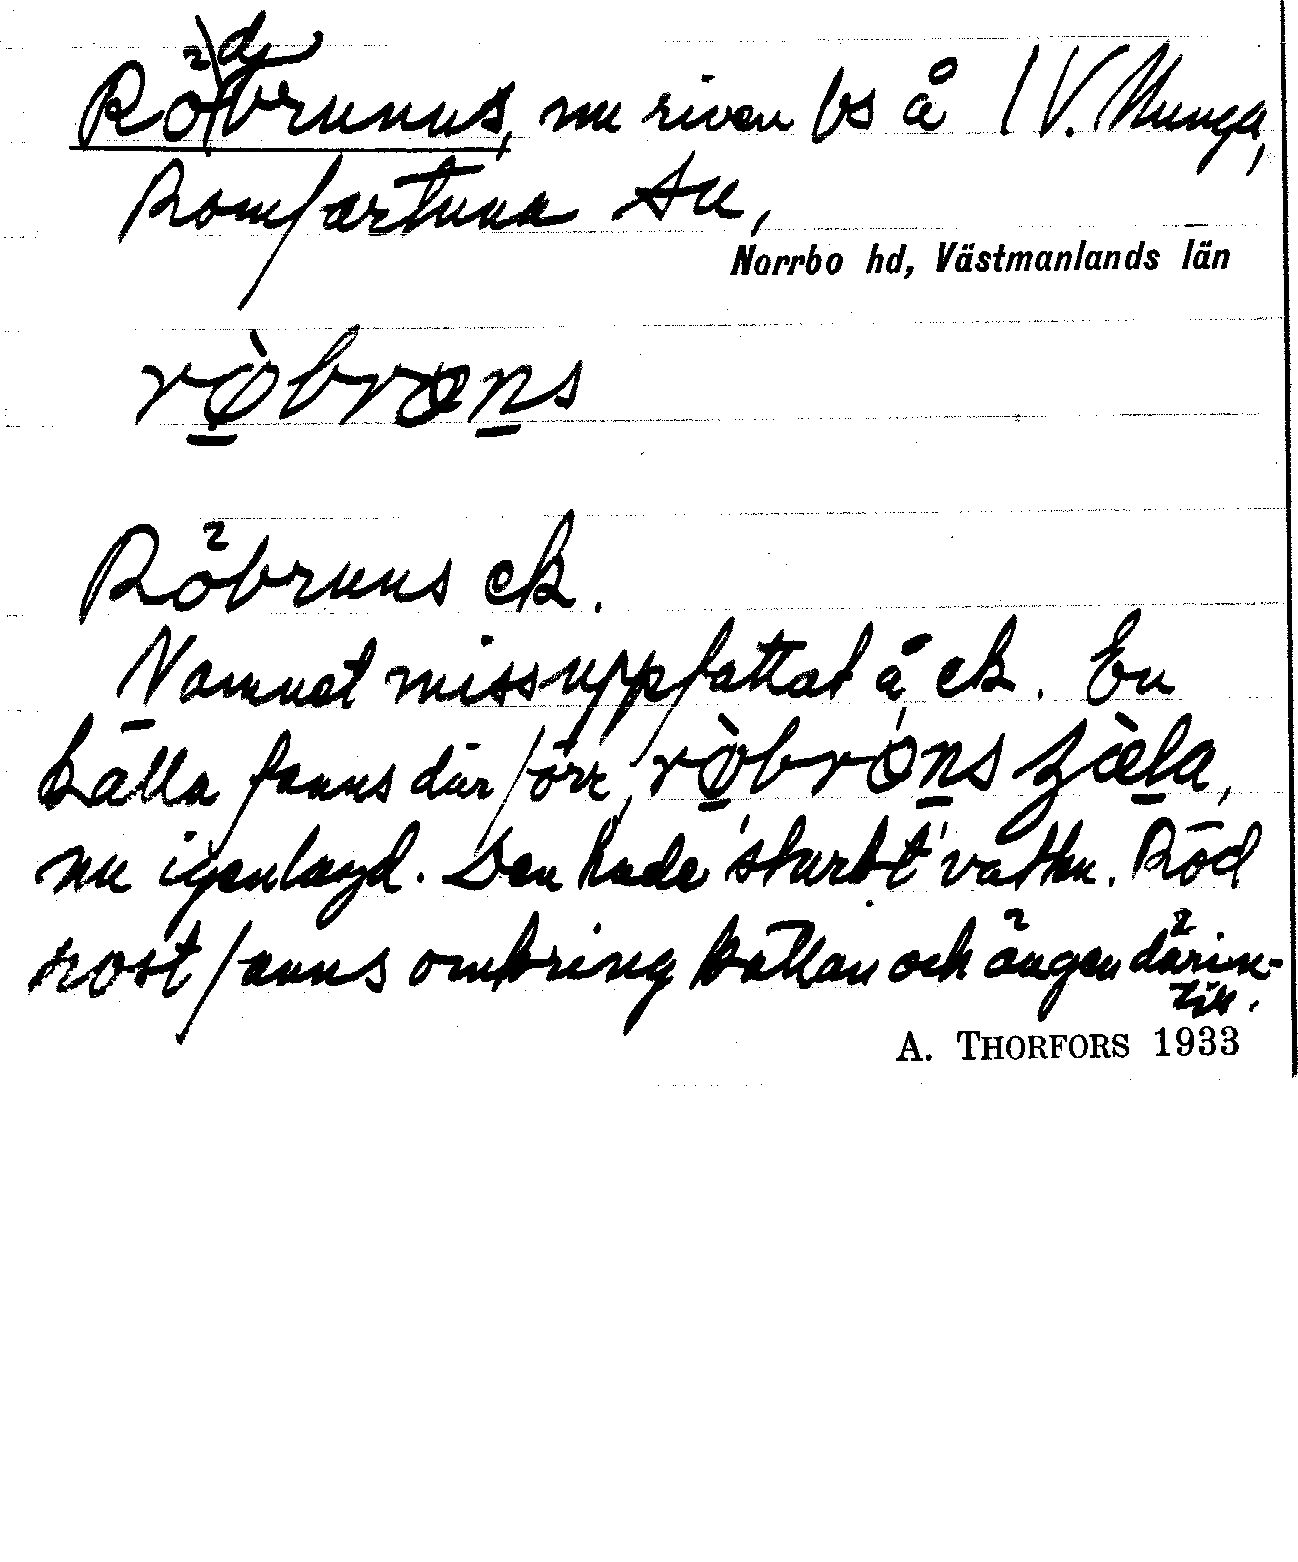 Rödbrunns, nu riven bs å 1 V. Munga,
Romfartuna sn,
Norrbo hd, Västmanlands län
rø̀brøns
Röbruns ek.
Namnet missuppfattat å ek. En
källa fanns där förr, rø̀brøns çæ̀la,
nu igenlagd. Den hade 'starkt' vatten. Röd
rost fanns omkring källan och ängen därin-
till.
A. THORFORS 1933